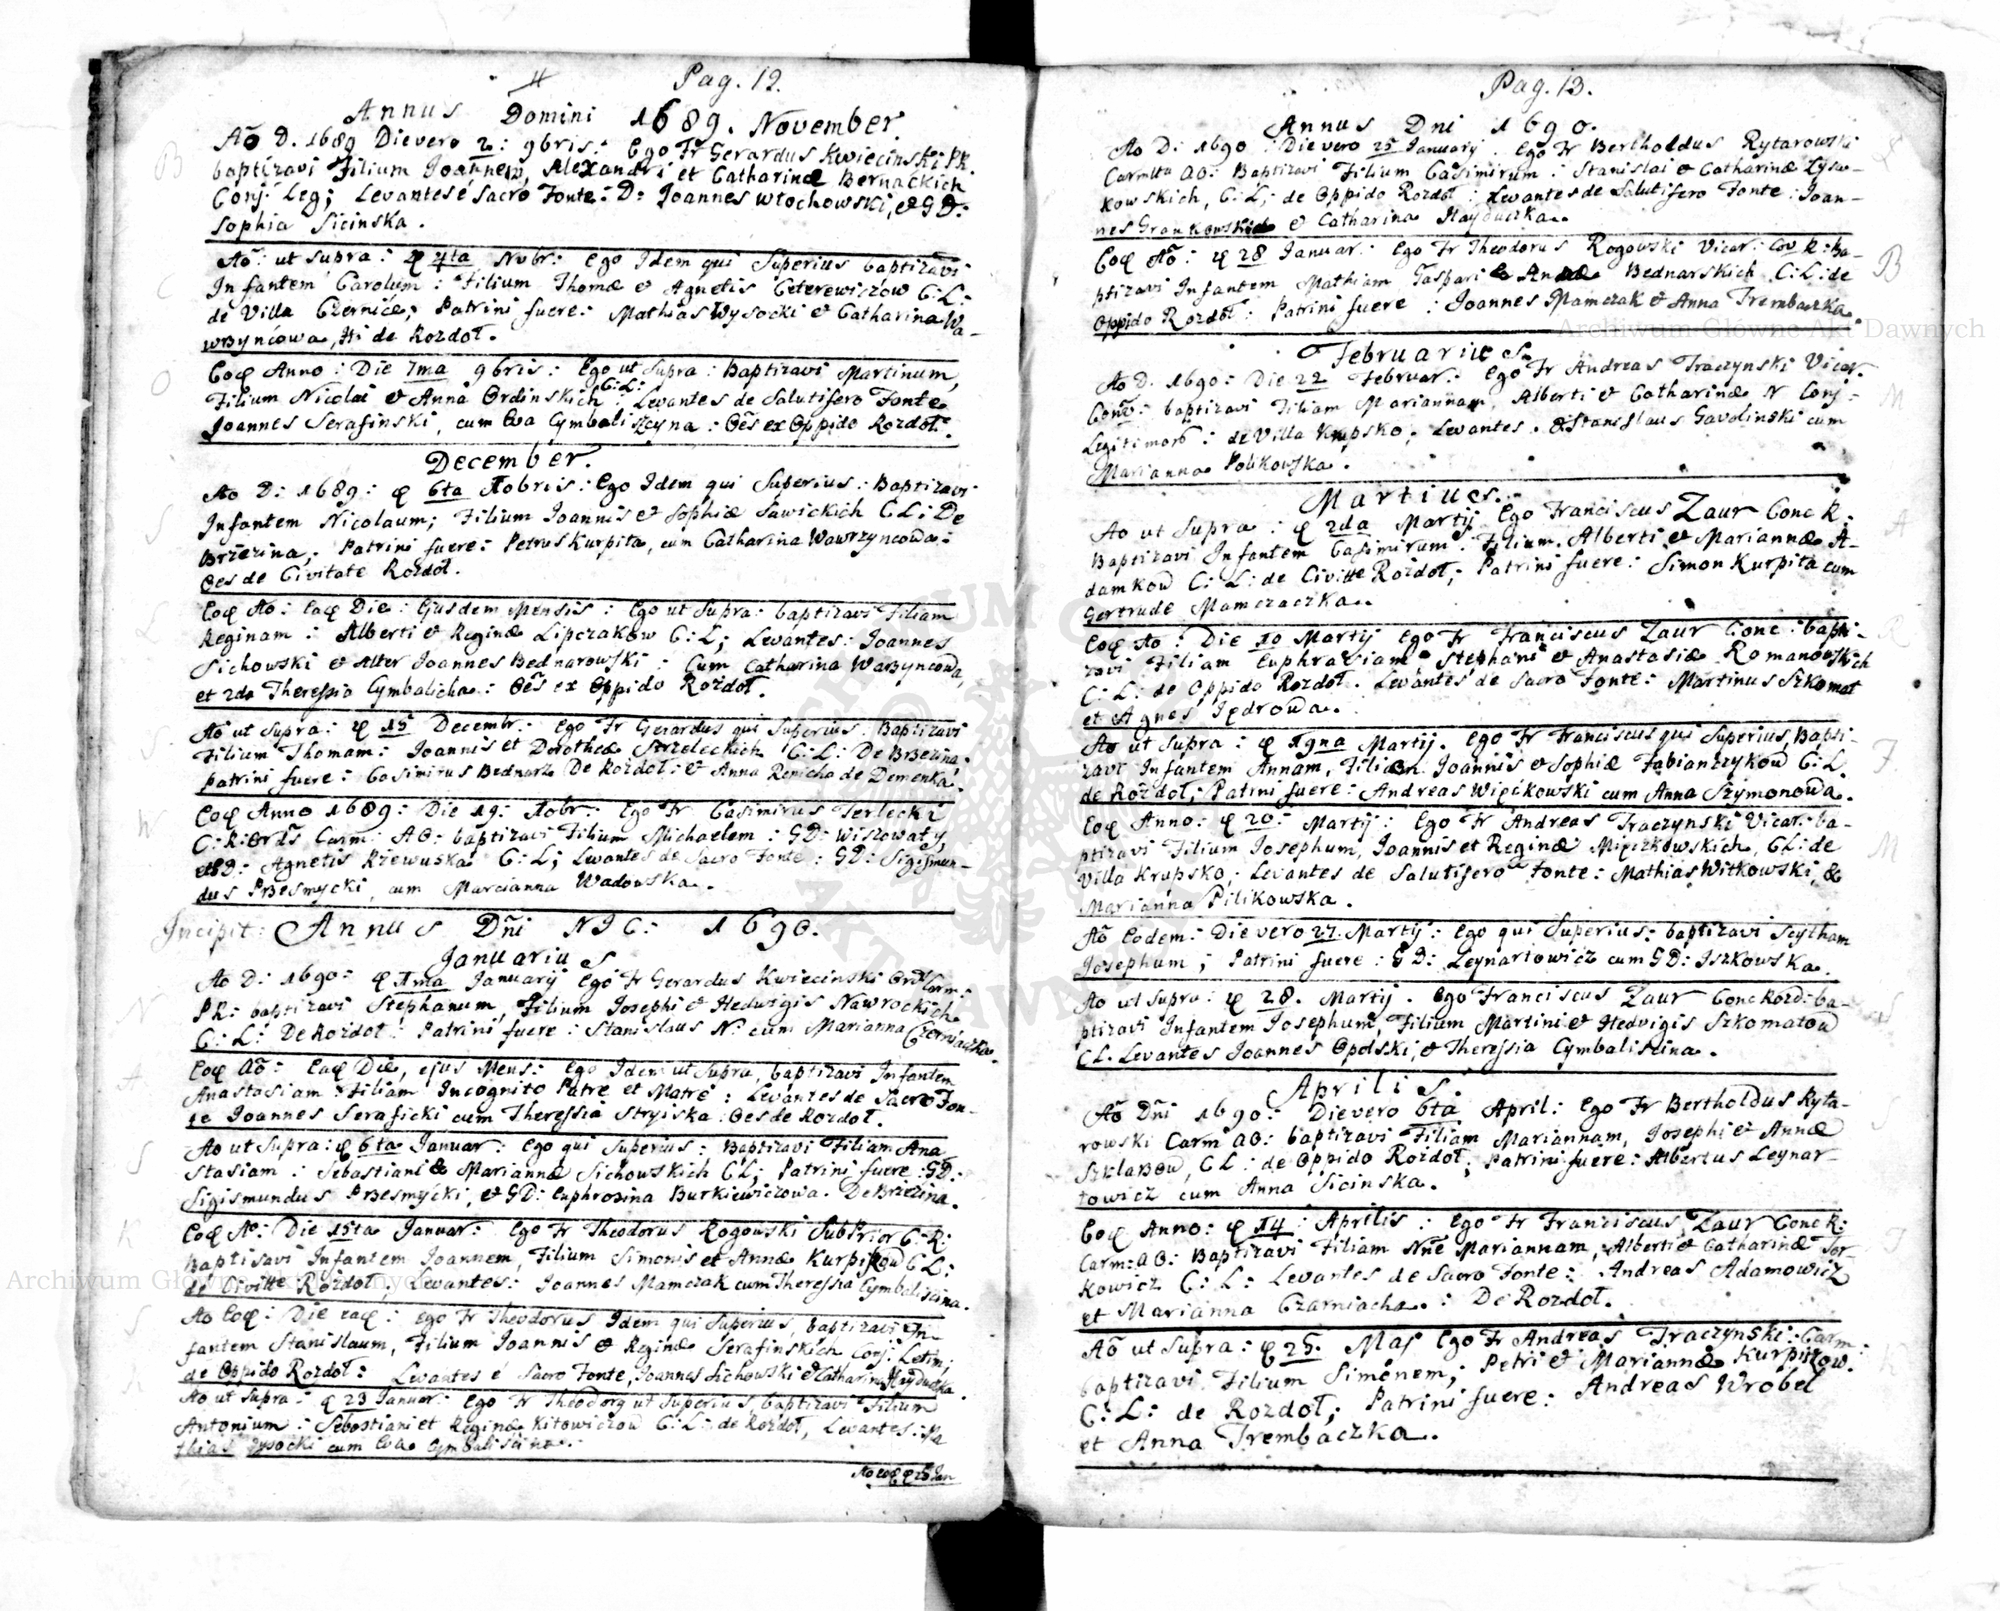 Pag. 12.
Annus Domini 1689. November.
Aõ D. 1689 Die vero 2: 9bris: Ego Fr Gerardus Kwiecinski PR.
baptizavi Filium Joannem, Alexandri et Catharinæ Bernackich
Conj: Leg; Levantes é Sacro Fonte: D: Joannes Wlochowski, & GD:
Sophia Sicinska.
Aõ: ut Supra: 4ta Nvbr: Ego Idem qui Superius baptizavi
Infantem Carolum: Filium Thomæ & Agnetis Ceterewiczow C: L:
de Villa Czernice; Patrini fuere: Mathias Wysocki & Catharina Wa-
wrzyncowa, Hi de Rozdoł.
Anno: Die 7ma 9bris: Ego ut Supra: Baptizavi Martinum,
Filium Nicolai & Anna Ordinskich C: L: Levantes de Salutifero Fonte
Joannes Serafinski, cum Eva Cymbaliszcyna: Oẽs ex Oppido Rozdoł.
December.
Ao D: 1689: 6ta Xobris: Ego Idem qui Superius: Baptizavi
Infantem Nicolaum; Filium Joannis & Sophiæ Sawickich C L: De
Brzezina; Patrini fuere: Petrus Kurpita, cum Catharina Wawrzyncowa:
Oes de Civitate Rozdoł.
Ao: Die: Ejusdem Mensis: Ego ut Supra: baptizavi Filiam
Reginam: Alberti & Reginæ Lipczakow C: L; Levantes: Joannes
Sichowski & Alter Joannes Bednarowski: Cum Catharina Warzyncowa,
et 2da Theressia Cymbalicha: Oẽs ex Oppido Rozdoł.
Aõ ut Supra: 15 Decembr: Ego Fr Gerardus qui Superius: Baptizavi
Filium Thomam: Joannis et Dorotheæ Strzeleckich C: L: De Brzezina.
Patrini fuere: Casimirus Bednarz De Rozdoł: & Anna Renicha de Demenka.
Anno 1689: Die 19: Xobr: Ego Fr Casimirus Terlecki
C: R: Ords Carm: AO: baptizavi Filium Michaelem: GD: Wiszowaty,
GD: Agnetis Rzewuska C: L; Levantes de Sacro Fonte: GD: Sigismun-
dus Przesmycki, cum Marcianna Wadowska.
Incipit: Annus Dñi NJC: 1690.
Januarius
Ao D: 1690: 1ma Januarij Ego Fr Gerardus Kwiecinski Ord Carm:
PR: baptizavi Stephanum, Filium Josephi & Hedwigis Nawrockich
C: L: De Rozdoł: Patrini fuere: Stanislaus N: cum Marianna Czerniaczka.
Aõ: Die, ejus Mens: Ego Idem ut Supra, baptizavi Infantem
Anastasiam Filiam Incognito Patre et Matre: Levantes de Sacro Fon-
te Joannes Seraficki cum Theressia Stryiska: Oes de Rozdoł.
Ao ut Supra: 6ta Januar: Ego qui Superius: Baptizavi Filiam Ana
Stasiam: Sebastiani & Mariannæ Sichowskich CL; Patrini fuere: GD:
Sigismundus Przesmycki, & GD: Euphrosina Burkiewiczowa. De Brzezina.
Ao: Die 15ta Januar: Ego Fr Theodorus Rogowski SubPrior C: R:
Baptisavi Infantem Joannem, Filium Simonis et Annæ Kurpitow C L:
de Civitte Rozdoł, Levantes: Joannes Mamczak cum Theressia Cymbaliscina.
Ao: Die: Ego Fr Theodorus Idem qui Superius, baptizavi In-
fantem Stanislaum, Filium Joannis & Reginæ Serafinskich Conj: Letim;
de Oppido Rozdoł: Levantes é Sacro Fonte, Joannes Sichowski & Catharina Hayduczka.
Ao ut Supra: 23 Januar: Ego Fr Theodorg ut Superius, baptizavi Filium
Antonium: Sebastiani et Reginæ Kitowiczow C: L: de Rozdoł, Levantes: Ma
thias Wysocki cum Eva Cymbaliscina.
Pag. 13.
Annus Dni 1690.
Ao D: 1690: Die vero 25 Januarij. Ego Fr Bertholdus Rytarowski
Carmlta AO: Baptizavi Filium Casimirum: Stanislai & Catharinæ Zysw-
kowskich, C: L; de Oppido Rozdoł: Levantes de Salutifero Fonte: Joan-
nes & Catharina Hayduczka.
Ao: 28 Januar: Ego Fr Theodorus Rogowski Vicar: Cov R: ba-
ptizavi Infantem Mathiam Jaspari & Annæ Bednarskich C: L: de
Oppido Rozdoł: Patrini fuere: Joannes Mamczak & Anna Trembaczka.
Februarius.
Ao D. 1690: Die 22 Februar: Ego Fr Andreas Traczynski Vicar.
Conv: baptizavi Filiam Mariannam, Alberti & Catharinæ N Conj:
Legitimorō: de Villa Krupsko; Levantes. Stanislaus Gavolinski cum
Marianna Polikowska.
Martius.
Ao ut Supra: 2da Martij Ego Franciscus Zaur Conc R:
Baptizavi Infantem Casimirum: Filium Alberti & Mariannæ A-
damkow C: L: de Civitte Rozdoł; Patrini fuere: Simon Kurpita cum
Gertrude Mamczaczka.
Ao: Die 10 Martij Ego Fr Franciscus Zaur Conc: bapti-
zavi Filiam Euphrasiam, Stephani & Anastasiæ Romanowskich
C: L: de Oppido Rozdoł. Levantes de Sacro Fonte: Martinus Szkomat
et Agnes Jędrowa.
Ao ut Supra: Martij. Ego Fr Franciscus qui Superius, Bapti-
zavi Infantem Annam, Filiam Joannis & Sophiæ Fabianczykow C: L.
de Rozdoł; Patini fuere: Andreas Więckowski cum Anna Szymonowa.
Anno: 20: Martij: Ego Fr Andreas Traczynski Vicar: ba-
ptizavi Filium Josephum, Joannis et Reginæ Mięczkowskich, CL: de
Villa Krupsko; Levantes de Salutifero Fonte: Mathias Witkowski, &
Marianna Pilikowska.
Aõ Eodem: Die vero 27 Martij: Ego qui Superius: baptizavi Scytham
Josephum; Patrini fuere: GD: Leynartowicz cum GD: Iszkowska.
Ao ut Supra: 28. Martij. Ego Franciscus Zaur Conc Rozd: ba-
ptizavi Infantem Josephum, Filium Martini & Hedvigis Szkomatow
CL. Levantes Joannes Opolski, & Theressia Cymbaliscina.
Aprilis.
Aõ Dñi 1690: Die vero 6ta April: Ego Fr Bertholdus Ryta-
rowski Carm AO: baptizavi Filiam Mariannam, Josephi & Annæ
Szklarzow, CL: de Oppido Rozdoł; Patrini fuere: Albertus Leynar-
towicz cum Anna Sicinska.
Anno: 14: Aprilis: Ego Fr Franciscus Zaur Conc R:
Carm: AO: Baptizavi Filiam Nñe Mariannam, Alberti & Catharinæ Jor-
kowicz C: L: Levantes de Sacro Fonte: Andreas Adamowicz
et Marianna Czarniacha: De Rozdoł.
Aõ ut Supra: 25. Maj Ego Fr Andreas Traczynski: Carm:
baptizavi Filium Simonem; Petri & Mariannæ Kurpitow.
C: L: de Rozdoł; Patrini fuere: Andreas Wrobel
et Anna Trembaczka.
Archiwum Główne Akt Dawnych
Archiwum Główne Akt Dawnych